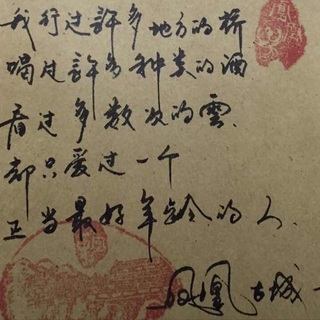 我行过許多地方的桥
喝过許多种类的酒
看过多数次的雲
却只爱过一个
正当最好年龄的人.
凤凰古城